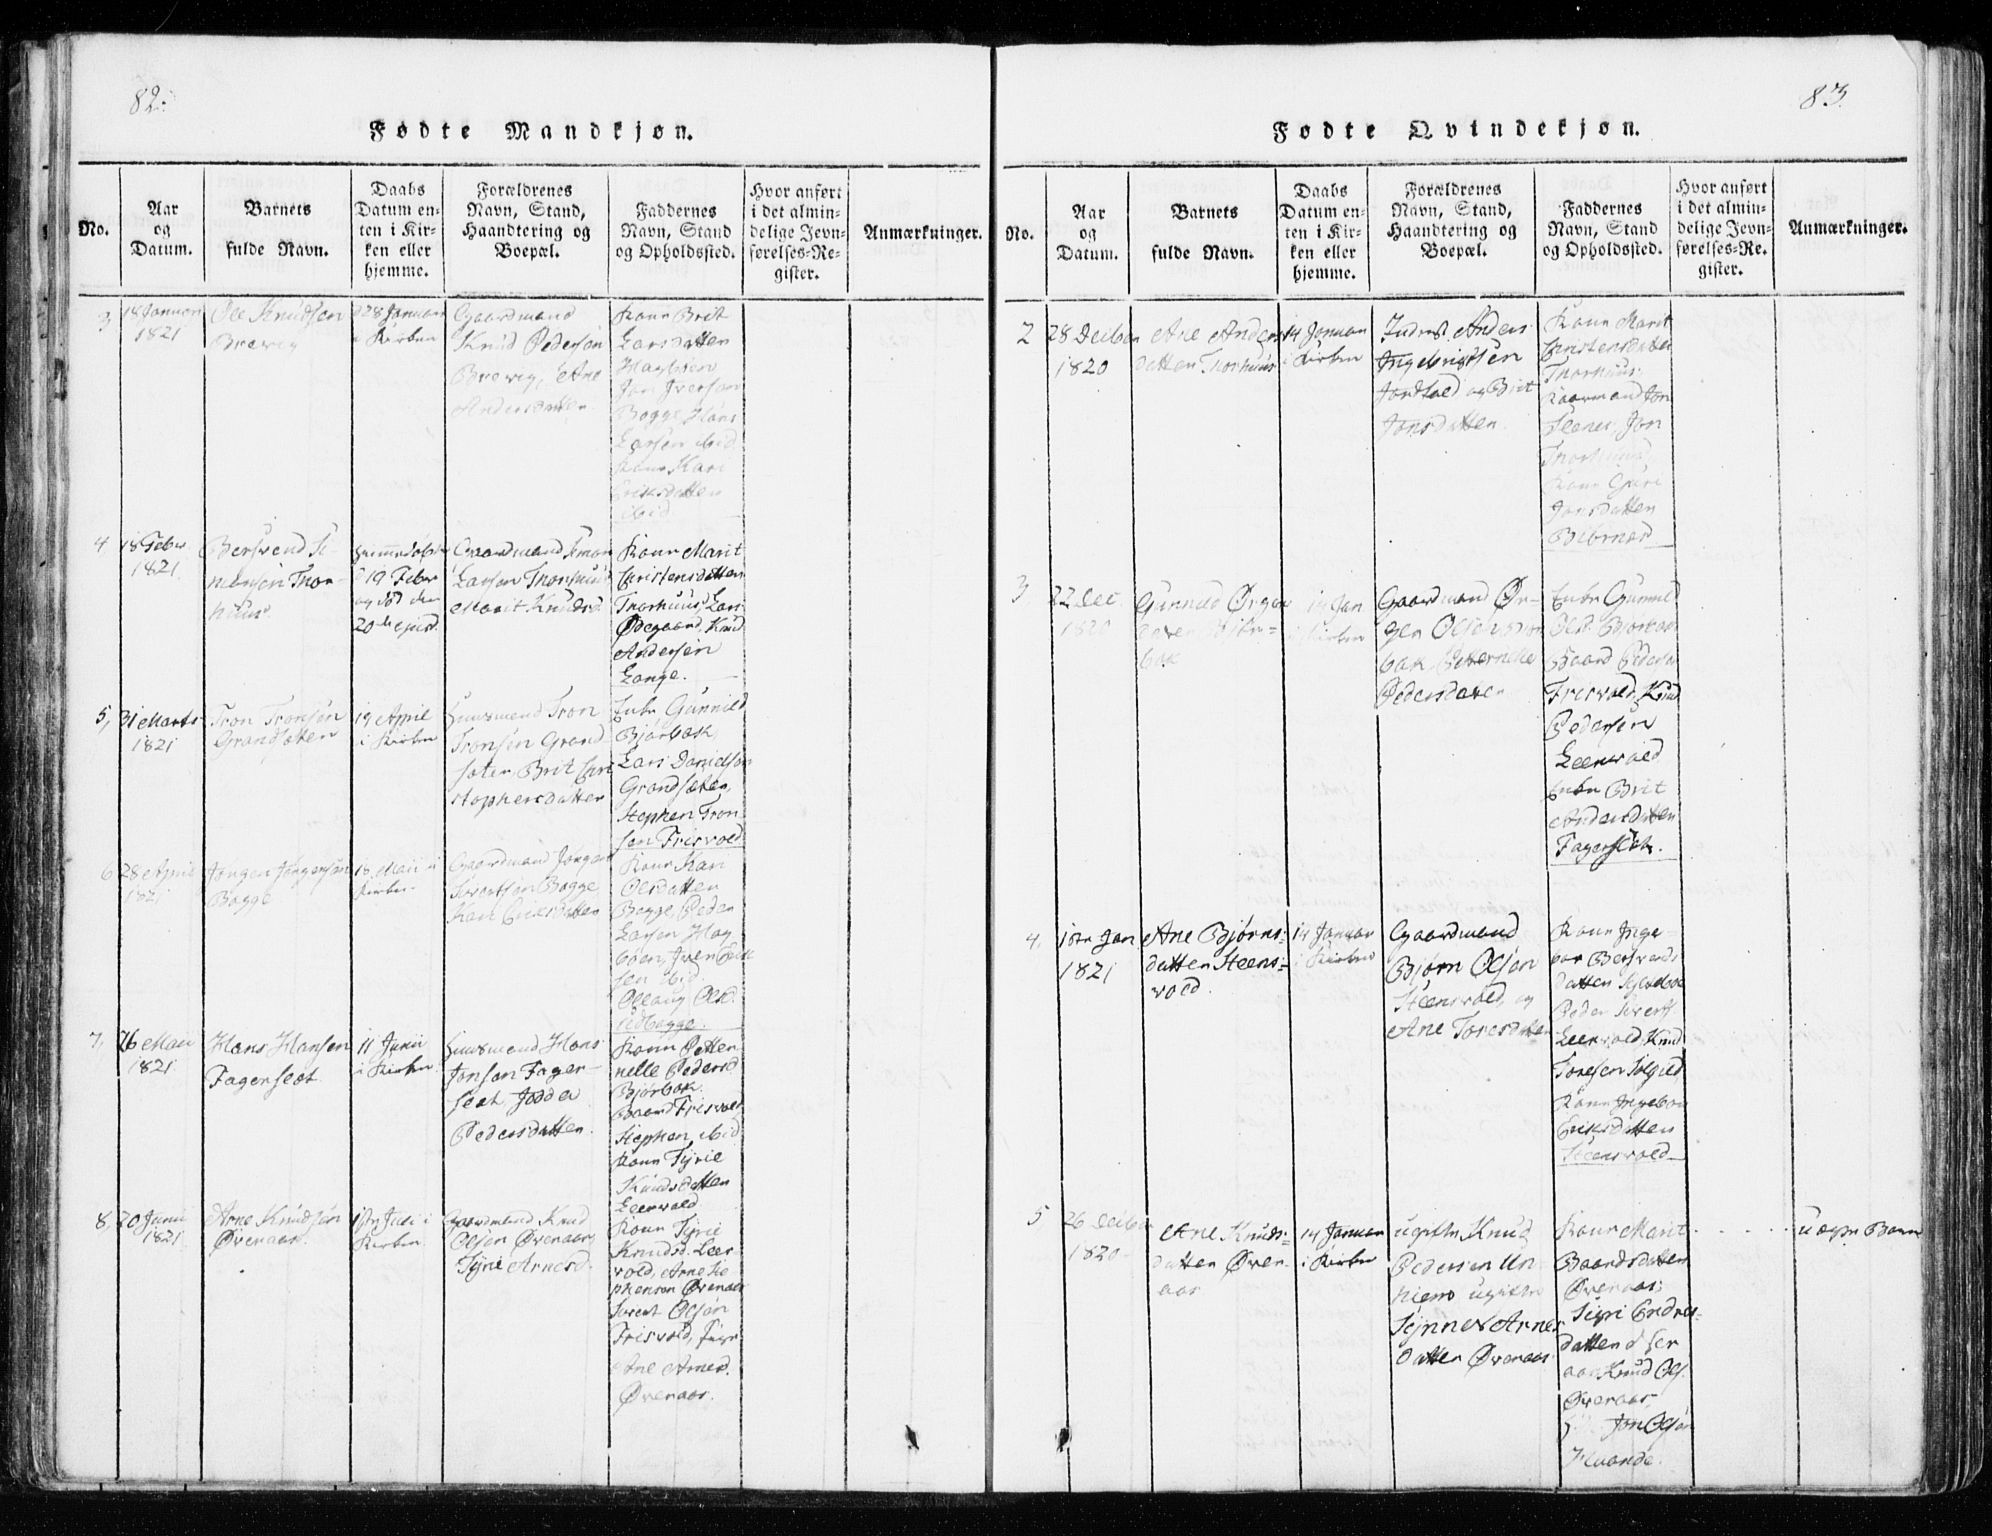 82.
Fødte Mandkjøn.
No.
Aar
og
Datum.
Barnets
fulde Navn.
Daabs
Datum en-
ten i Kir-
ken eller
hjemme.
Forældrenes
Navn, Stand,
Haandtering og
Boepæl.
Faddernes
Navn, Stand
og Opholdssted.
Hvor anført
i det almin-
delige Jevn-
førelses-Re-
gister.
Anmærkninger.
3
18 Januar
1821
Ole Knudsen
Brevig
d 28 Januar
i Kirken
Gaardmand
Knud Pedersen
Brevig, Ane
Andersdatten
Kone Brit
Larsdatten
Hagbøen
Jon Iversen
Bogge, Hans
Larsen ibid
Kone Kari
Eriksdatten
ibid
4
18 Febr
1821
Bersvend Si-
monsen Thor-
huus
hjemmedøbt
d 19 Febr
og død den
20de ejusd.
Gaardmand Simon
Larsen Thorhuus
Marit Knudsd
Kone Marit
Christensdatten
Thorhuus, Lars
Ødegaard, Knud
Andersen
Lange.
5,
31 Marts
1821
Tron Tronsen
Grandsæten
19 April
i Kirken
Huusmand Tron
Tronsen Grand
sæter, Brit Chri
stophersdatter
Enke Gunnild
Bjørbak,
Lars Danielsen
Grandsæten,
Stephen Tron
sen Frisvold
6
28 April
1821
Jørgen Jørgensen
Bogge
18 Maii i
Kirken
Gaardmand Jørgen
Sivertsen Bogge
Kari Eriksdatten
Kone Kari
Olsdatten
Bogge, Peder
Larsen Hag
bøen, Iver Erik
sen ibid
Ollaug Olsd.
Udbogge.
7,
26 Maii
1821
Hans Hansen
Fagersleet
11 Junii
i Kirken
Huusmand Hans
Jonsen Fager-
sleet, Jodda
Pedersdatten.
Kone Petter
nelle Pedersd
Bjørbak.
Baard Frisvold,
Stephen ibid
Kone Tyrie
Knudsdatten
Leervold
8,
20 Junii
1821
Arne Knudsen
Øveraas.
1ste Juli i
Kirken
Gaardmand Knud
Olsen Øveraas,
Tyrie Arnesd.
Kone Tyrie
Knudsd. Leer
vold, Arne Ste
phensen Øveraas
Sivert Olsen
Frisvold, Pige
Ane Arnesd.
Øveraas.
83.
Fødte Qvindekjøn.
No.
Aar
og
Datum.
Barnets
fulde Navn.
Daabs
Datum en-
ten i Kir-
ken eller
hjemme.
Forældrenes
Navn, Stand,
Haandtering og
Boepæl.
Faddernes
Navn, Stand
og Opholdssted.
Hvor anført
i det almin-
delige Jevn-
førelses-Re-
gister.
Anmærkninger.
2
28 Decbr
1820
Ane Anders
datten Thorhuus
14 Januar
i Kirken
Inderst Anders
Ingebrigtsen
og Brit
Jonsdatten
Kone Marit
Christensdatten
Thorhuus.
Jon
Thorhuus,
Kone Guri
Jonsdatten
3
22 Dec.
1820
Gunnild Ørgen
daten Bjør-
bak
14 Jan
i Kirken
Gaardmand Ør-
gen Olsen Bjør
bak,
Pedersdaten
Enke Gunnild
Olsd. Bjørbak
Baard Pedersen
Frisvold, Knud
Pedersen
Leervold
Enke Brit
Andersdatten
Fagersleet.
4.
1ste Jan
1821
Ane Bjørns-
datten Steens-
vold.
14 Januar
i Kirken
Gaardmand
Bjørn Olsen
Steensvold, og
Ane Toresdatten
Kone Inge-
bor Bersvends
datten
Peder Sivertsen
Leervold, Knud
Toresen
Kone Ingebor
Eriksdatten
Steensvold
5
26 Decbr
1820
Ane Knuds-
datten Øver-
aas
14 Januar
i Kirken
ugifte Knud
Pedersen Un
hiem ugifte
Synnev Arnes
datter Øveraas
Kone Marit
Baardsdatten
Øveraas,
Sigri Endres-
datten Øfver
aas Knud Ols.
Øveraas,
Jon Olsen
uægte Barn